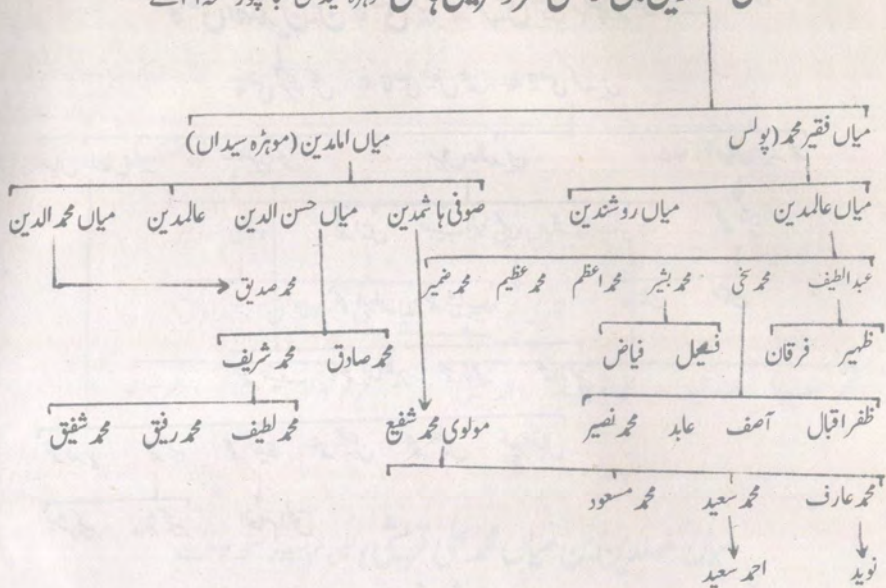 میاں فقیر محمد (پولس میاں امامدین (موہڑہ سیداں)
میاں عالمدین میاں روشندین صوفی ہاشمدین میاں حسن الدین عالمدین میاں محمد الدین
عبدالطیف محمد سخی محمد بشیر محمد اعظم محمد عظیم محمد ضمیر محمد صدیق
ظہیر فرقان فیصل فیاض محمد صادق محمد شریف
ظفر اقبال آصف عابد محمد نصیر مولوی محمد شفیع محمد لطیف محمد رفیق محمد شفیق
محمد عارف محمد سعید محمد مسعود
نوید احمد سعید